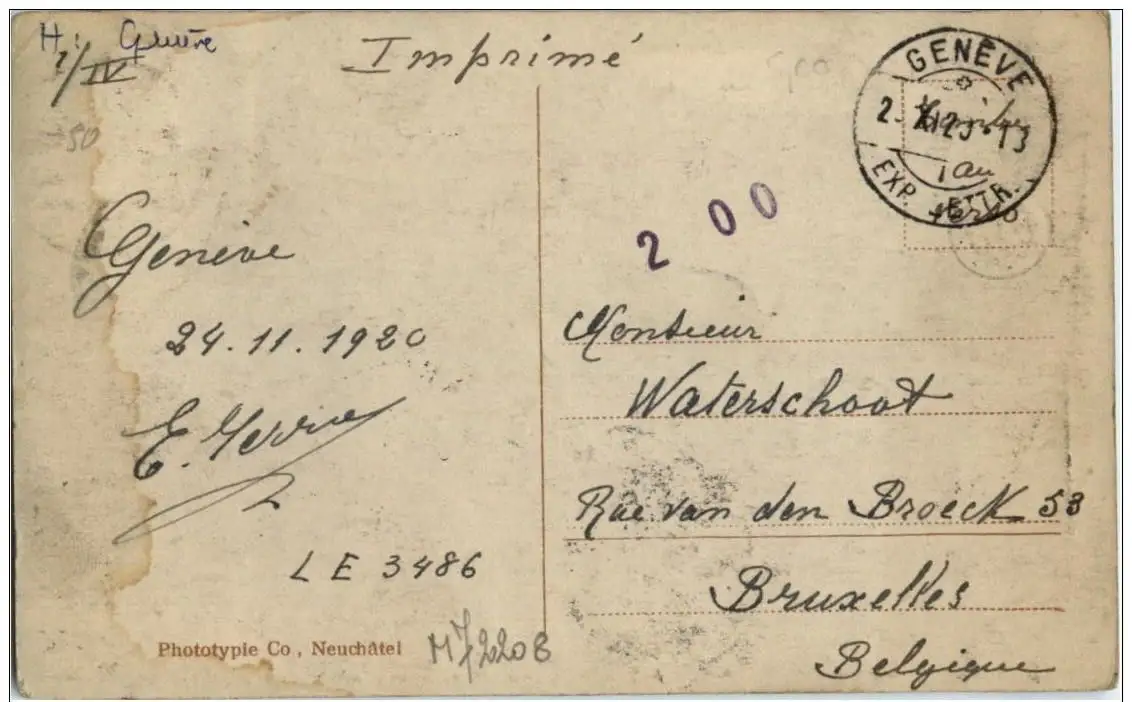 H: Genève
Imprimé
1/IV
50
GENÈVE
XI 20 - 13
EXP. LETTR.
Timbre
au
verso
2 00
Genève
24.11.1920
E.
LE 3486
Phototypie Co, Neuchâtel
M72208
Monsieur
Waterschoot
Rue van den Broeck 53
Bruxelles
Belgique